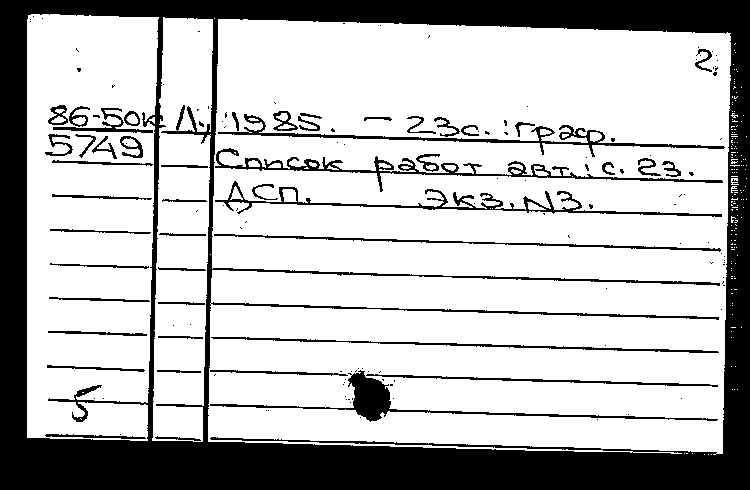 2.
86-50к Л., 1985. - 23с. : граф.
5749 Список работ авт.: с. 23.
ДСП. Экз. N3.
5